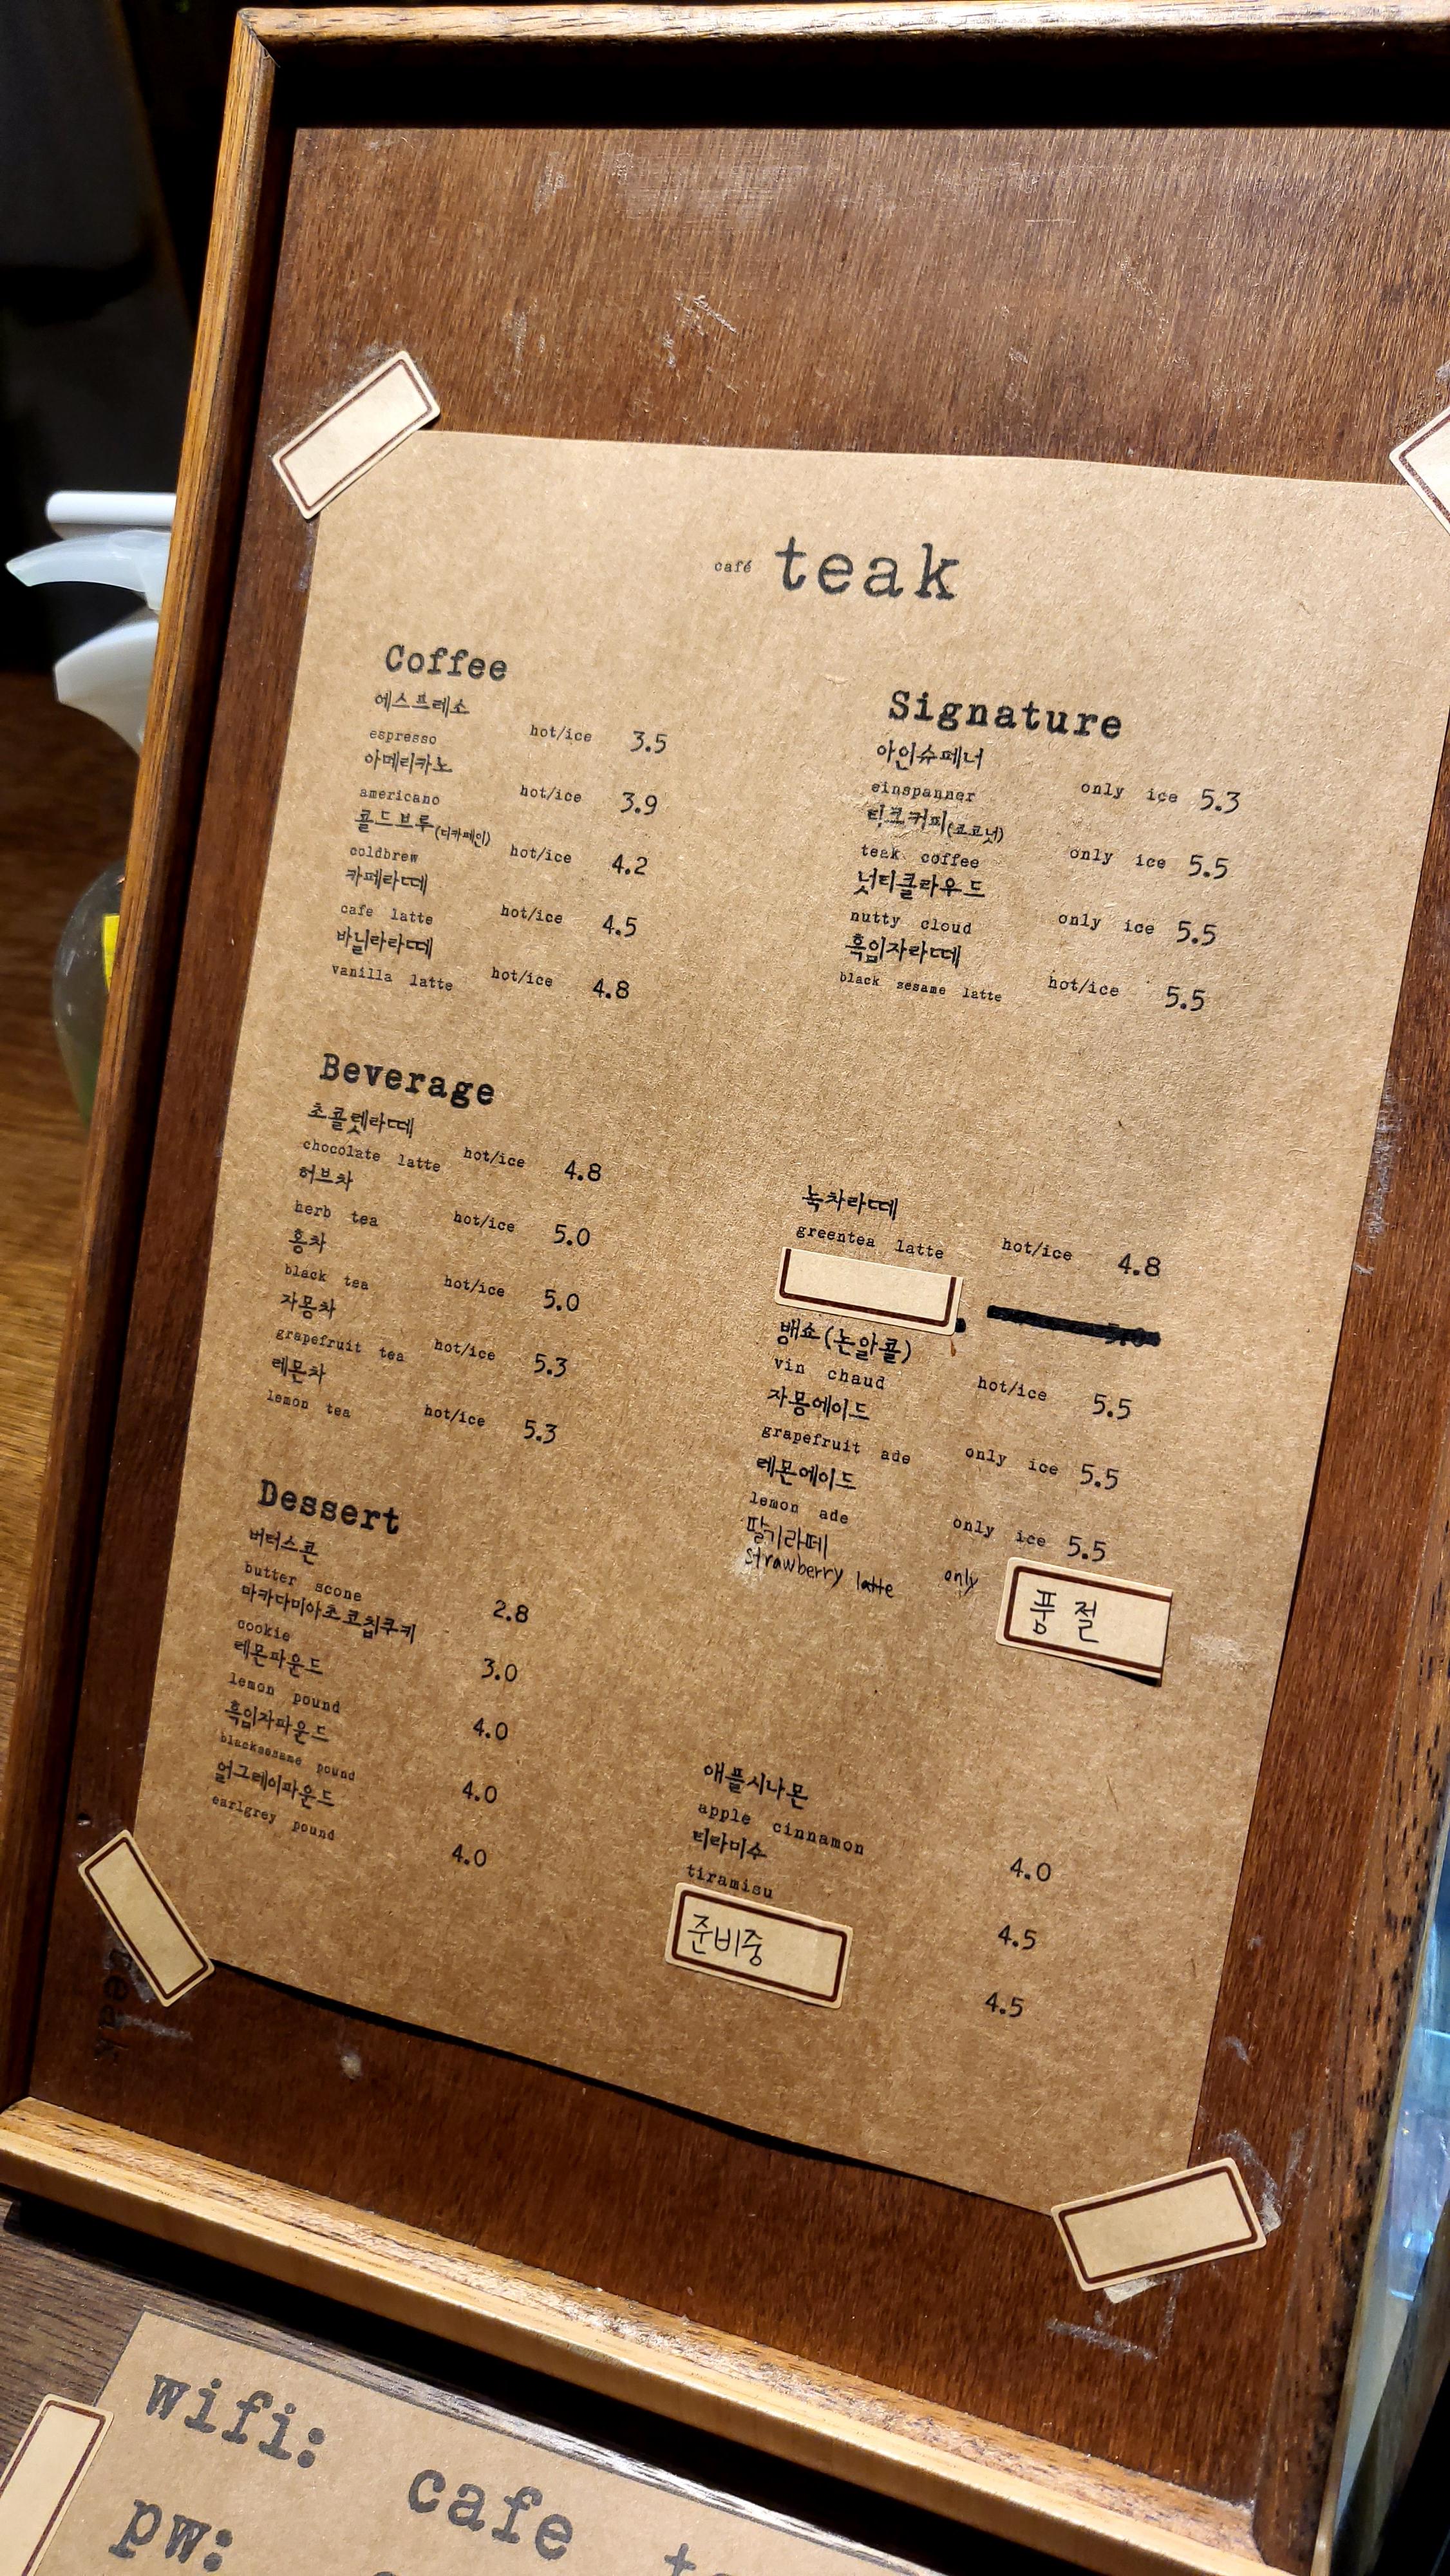 café teak
Coffee
에스프레소
espresso hot/ice 3.5
아메리카노
americano hot/ice 3.9
콜드브루(디카페인)
coldbrew hot/ice 4.2
카페라떼
cafe latte hot/ice 4.5
바닐라라떼
vanilla latte hot/ice 4.8
Signature
아인슈페너
einspanner only ice 5.3
티크커피(코코넛)
teak coffee only ice 5.5
넛티클라우드
nutty cloud only ice 5.5
흑임자라떼
black sesame latte hot/ice 5.5
Beverage
초콜렛라떼
chocolate latte hot/ice 4.8
허브차
herb tea hot/ice 5.0
홍차
black tea hot/ice 5.0
자몽차
grapefruit tea hot/ice 5.3
레몬차
lemon tea hot/ice 5.3
녹차라떼
greentea latte hot/ice 4.8
뱅쇼(논알콜)
vin chaud hot/ice 5.5
자몽에이드
grapefruit ade only ice 5.5
레몬에이드
lemon ade only ice 5.5
딸기라떼
strawberry latte only
품절
Dessert
버터스콘
butter scone 2.8
마카다미아초코칩쿠키
cookie 3.0
레몬파운드
lemon pound 4.0
흑임자파운드
blacksesame pound 4.0
얼그레이파운드
earlgrey pound 4.0
애플시나몬
apple cinnamon 4.0
티라미수
tiramisu 4.5
준비중 4.5
teak
wifi: cafe
pw: